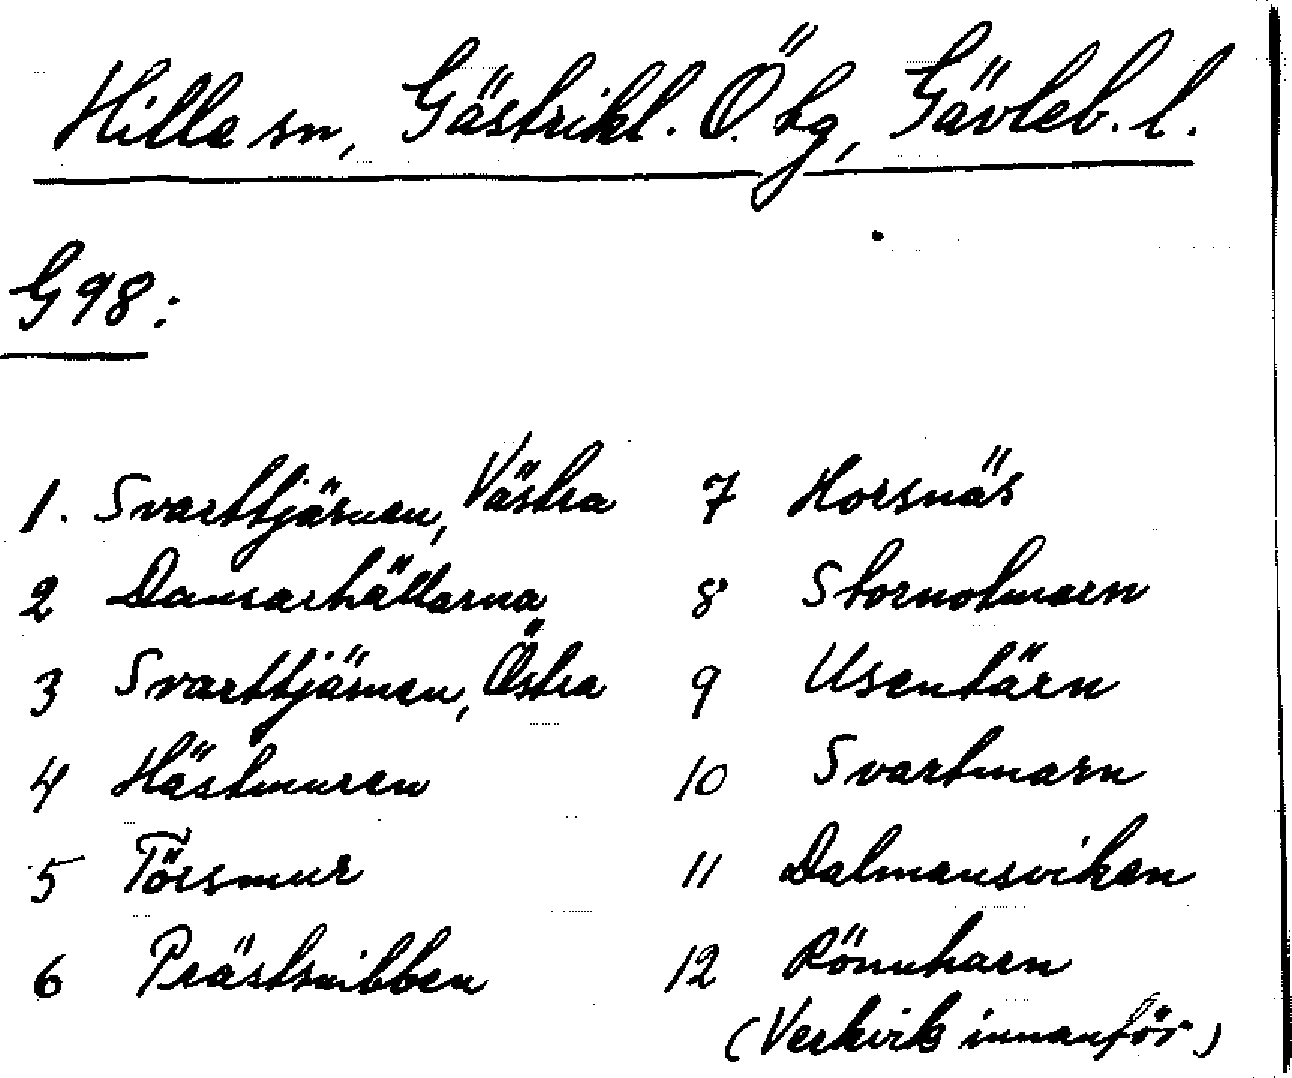 Hille sn, Gästrikl. Ö. tg, Gävleb. l.
G 98:
1. Svarttjärnen, Västra
2 Dansarhällarna
3 Svarttjärnen, Östra
4 Hästmuren
5 Törsmur
6 Prästsnibben
7 Horsnäs
8 Stornotmarn
9 Usentärn
10 Svartmarn
11 Dalmansviken
12 Rönnharn
(Verkvik innanför)